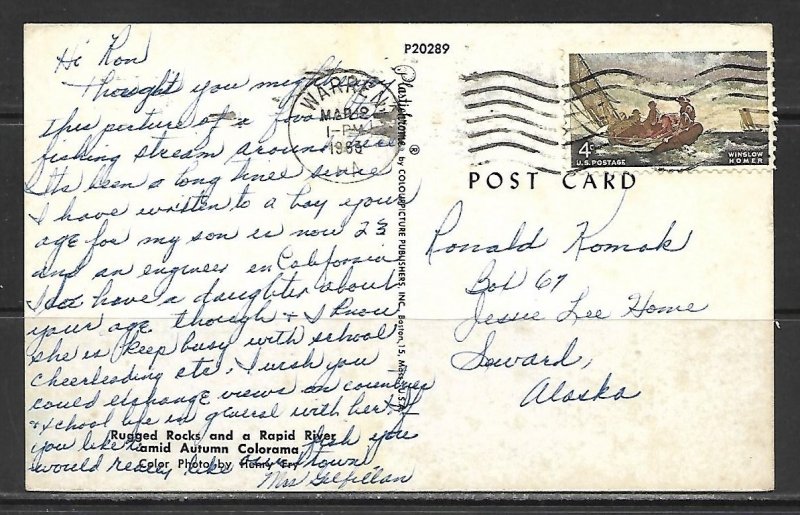 P20289
Hi Ron
Thought you might
this picture of a
fishing stream around here
Its been a long time since
I have written to a boy your
age for my son is now 23
and an engineer in California
I do have a daughter about
your age though + I know
she is keep busy with school
cheerleading etc. I wish you
could exchange views on countries
+ school life in general with her. If
you like to fish you
would really like our town,
Mrs Gilfillan
Rugged Rocks and a Rapid River
amid Autumn Colorama
Color Photo by Henry Fry
Plastichrome ® by COLOURPICTURE PUBLISHERS, INC. Boston, 15, Mass., U.S.A.
WARREN
MAR 2
1-PM
1963
4c
U.S. POSTAGE
WINSLOW
HOMER
POST CARD
Ronald Komak
Box 67
Jessie Lee Home
Seward,
Alaska